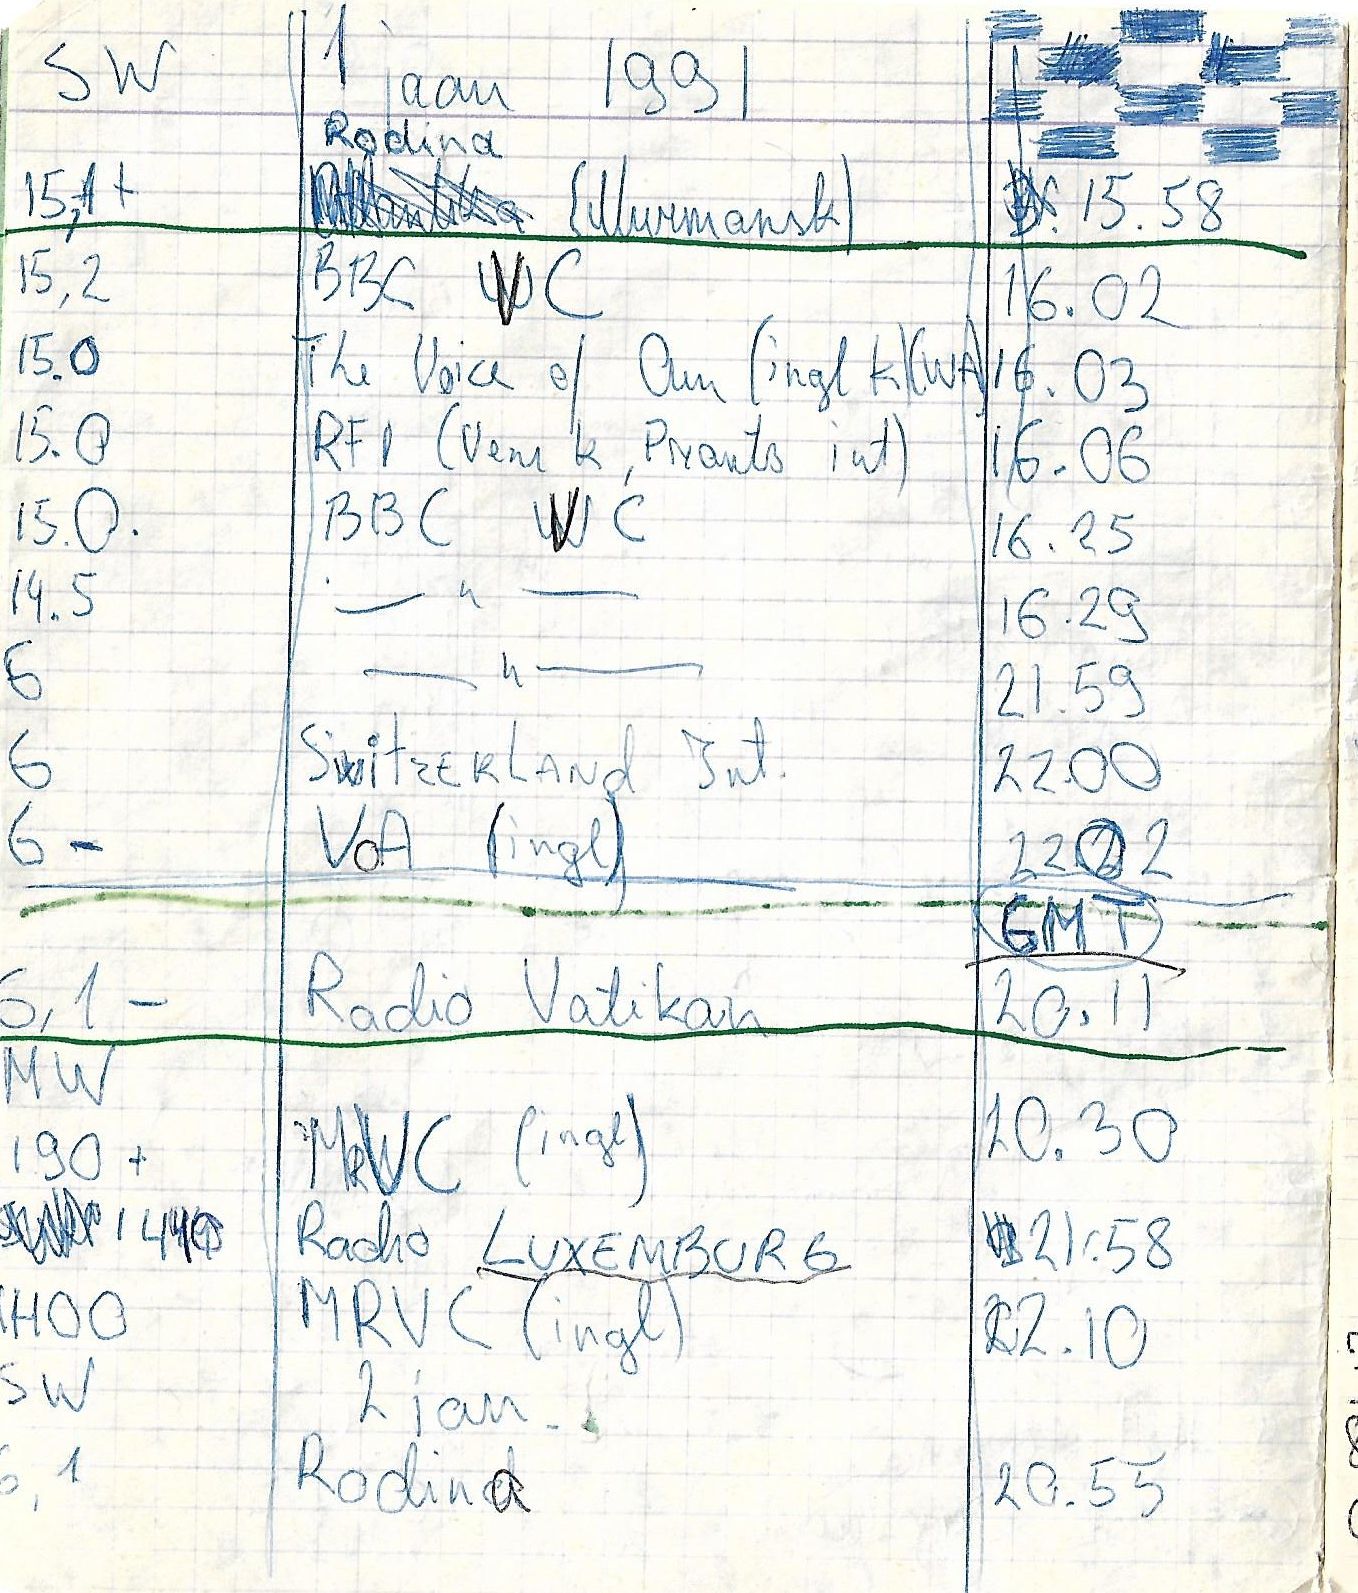 SW 1 jaan 1991
Rodina
15,1+ (Murmansk) 15.58
15,2 BBC WC 16.02
15.0 The Voice of (ingl k) (WA) 16.03
15.0 RFI (Vene k, Int) 16.06
15.0. BBC WC 16.25
14.5 — " — 16.29
6 — " — 21.59
6 SwitzERLANd Int. 22.00
6 - VoA (ingl) 22.02
GMT
6,1 - Radio Vatikan 20.11
MW
190 + MRWC (ingl) 20.30
1440 Radio LUXEMBURG 21.58
MRVC (ingl) 22.10
SW 2 jan.
6,1 Rodina 20.55